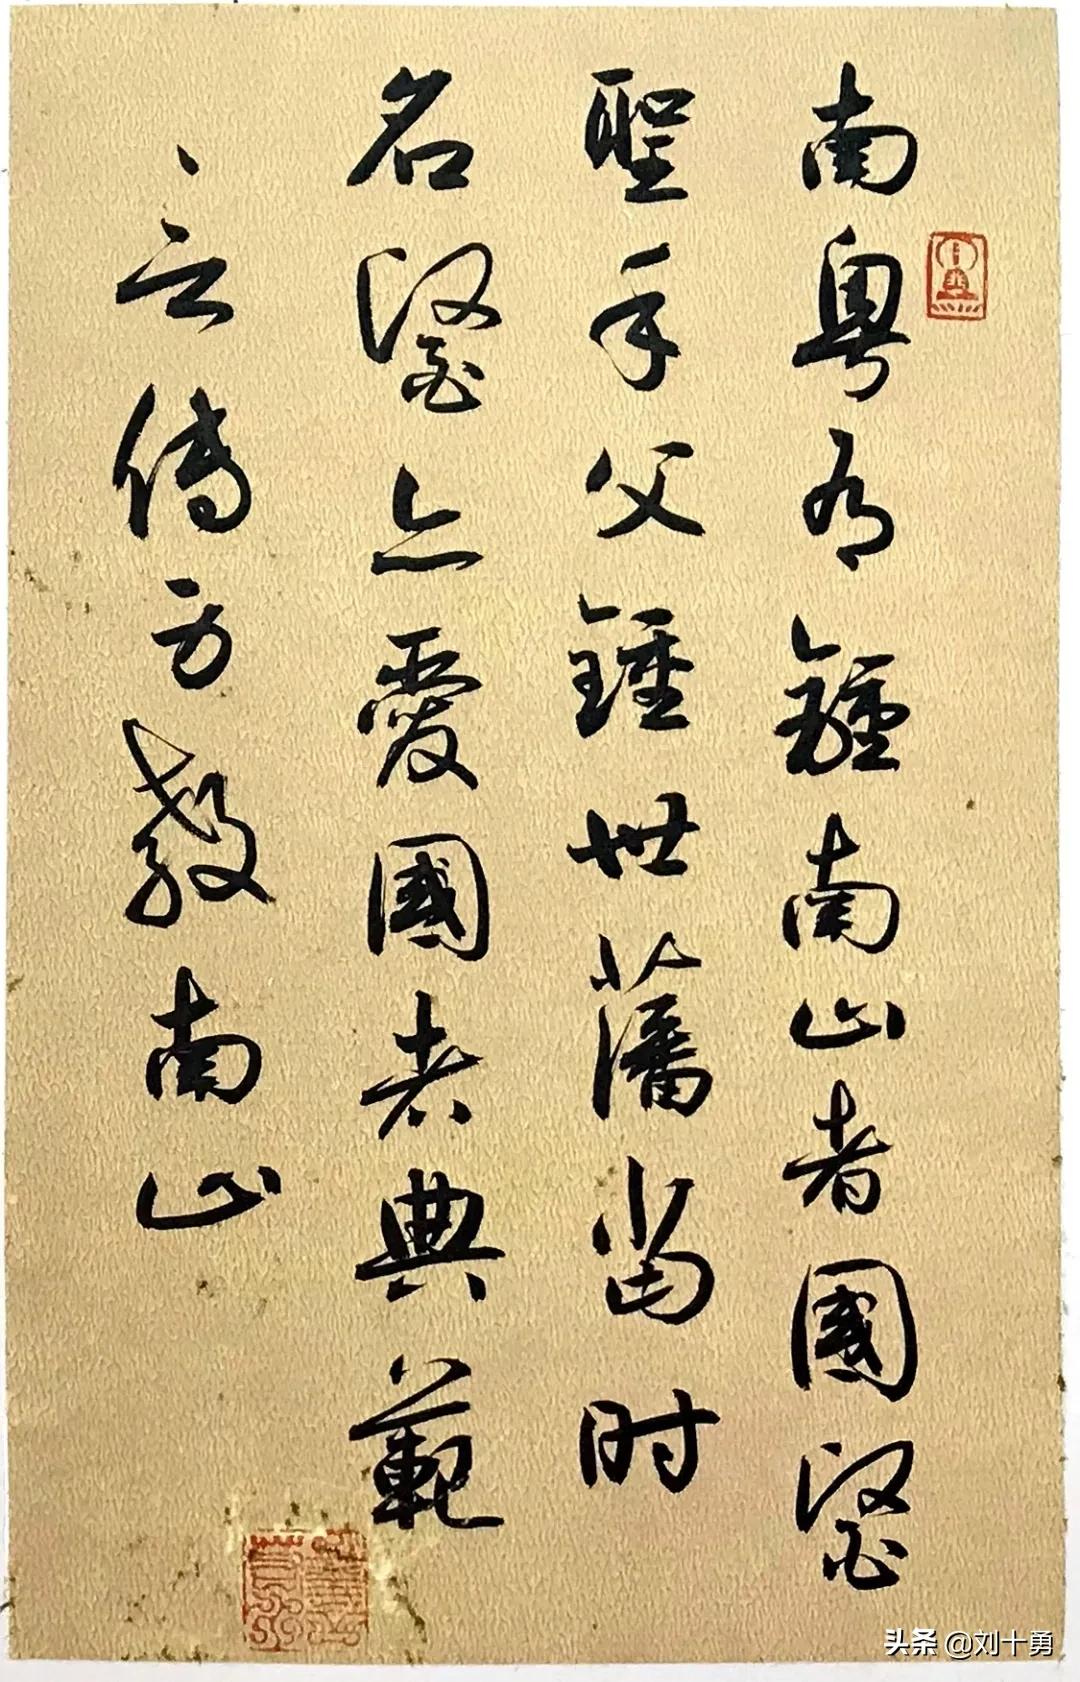 南粤有鍾南山者國醫
聖手父鍾世藩當时
名醫亦愛國者典範
言傳方教南山
头条 @刘十勇